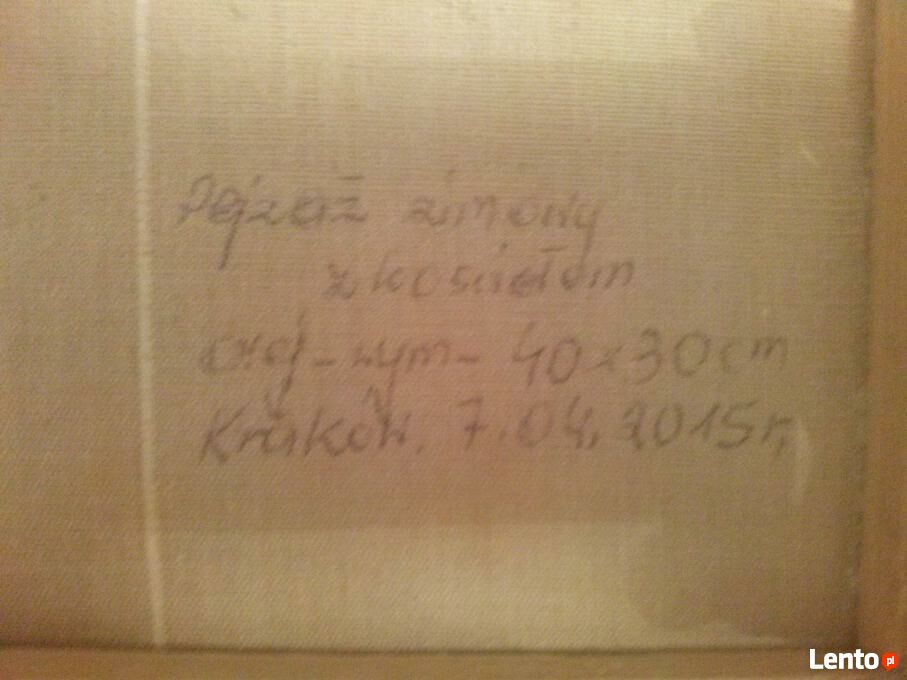 Pejzaż zimowy
z kościołem
olej - wym - 40 x 30 cm
Kraków. 7.04.2015 r,
Lento pl